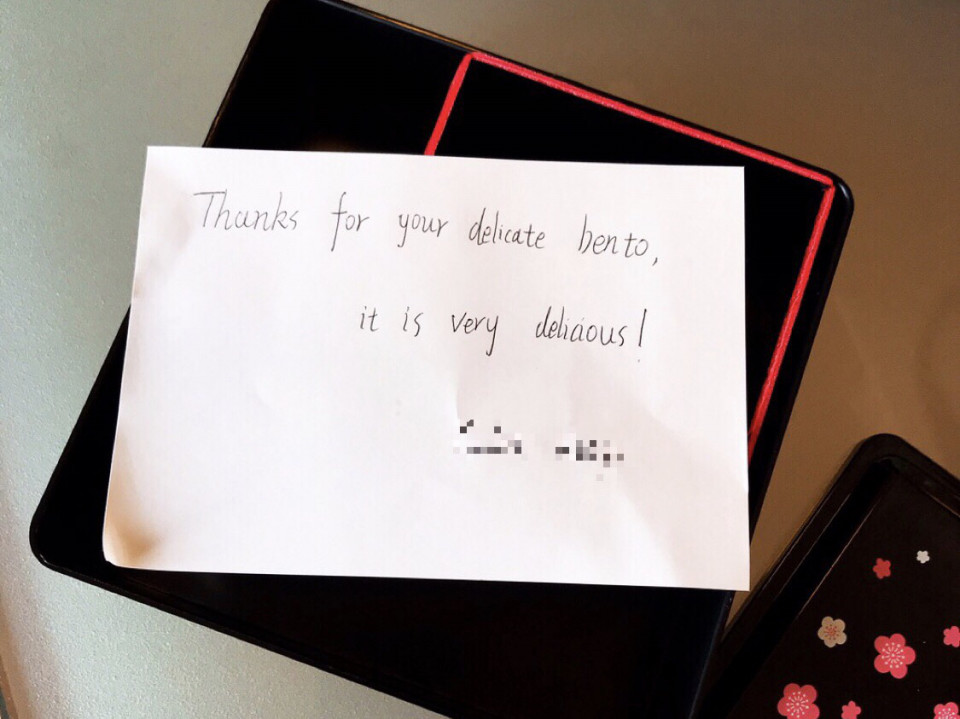 Thanks for your delicate bento,
it is very delicious!